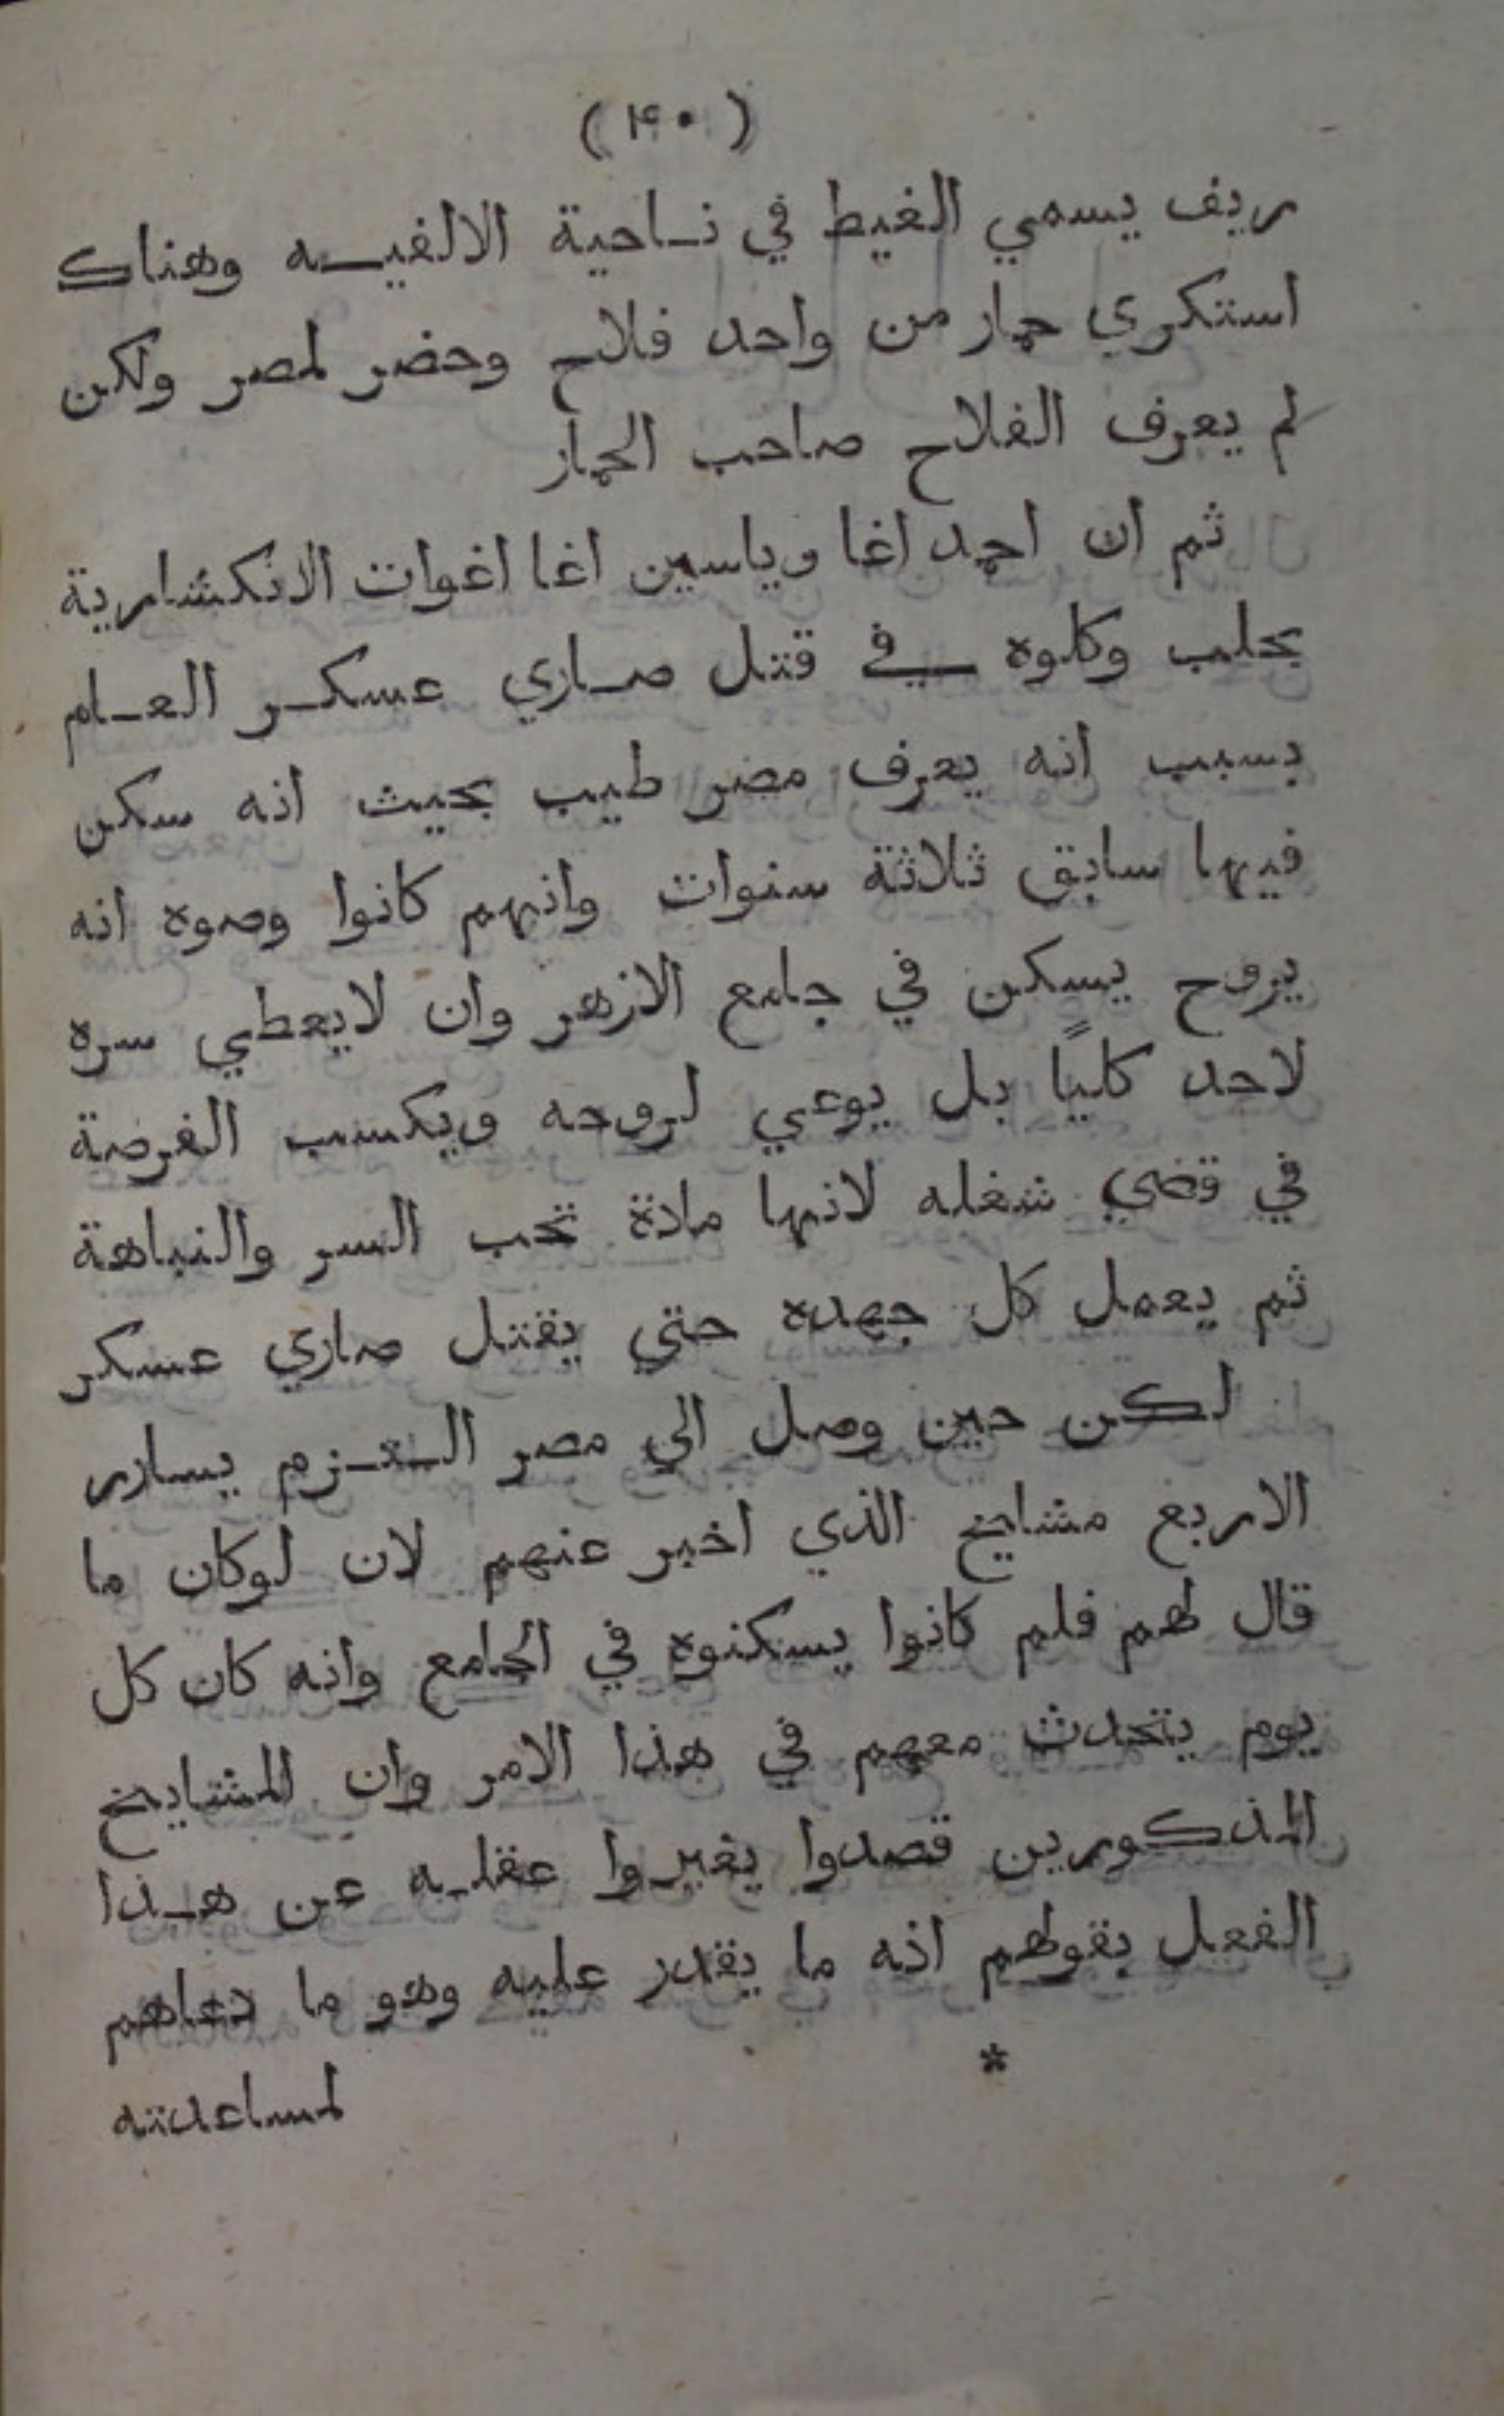 (٤٠)
ريف يسمي الغيط في ناحية الالفيه وهناك
استكري حمار من واحد فلاح وحضر لمصر ولكن
لم يعرف الفلاح صاحب الحمار
ثم ان احمد اغا وياسين اغا اغوات الانكشارية
بحلب وكلوه في قتل صاري عسكر العام
بسبب انه يعرف مصر طيب بحيث انه سكن
فيها سابق ثلاثة سنوات وانهم كانوا وصوه انه
يروح يسكن في جامع الازهر وان لايعطي سره
لاحد كليًا بل يوعي لروحه ويكسب الفرصة
في قضي شغله لانها مادة تحب السر والنباهة
ثم يعمل كل جهده حتي يقتل صاري عسكر
لكن حين وصل الي مصر العزم يسارر
الاربع مشايخ الذي اخبر عنهم لان لوكان ما
قال لهم فلم كانوا يسكنوه في الجامع وانه كان كل
يوم يتحدث معهم في هذا الامر وان المشايخ
المذكورين قصدوا يغيروا عقله عن هذا
الفعل بقولهم انه ما يقدر عليه وهو ما دعاهم
*
لمساعدته